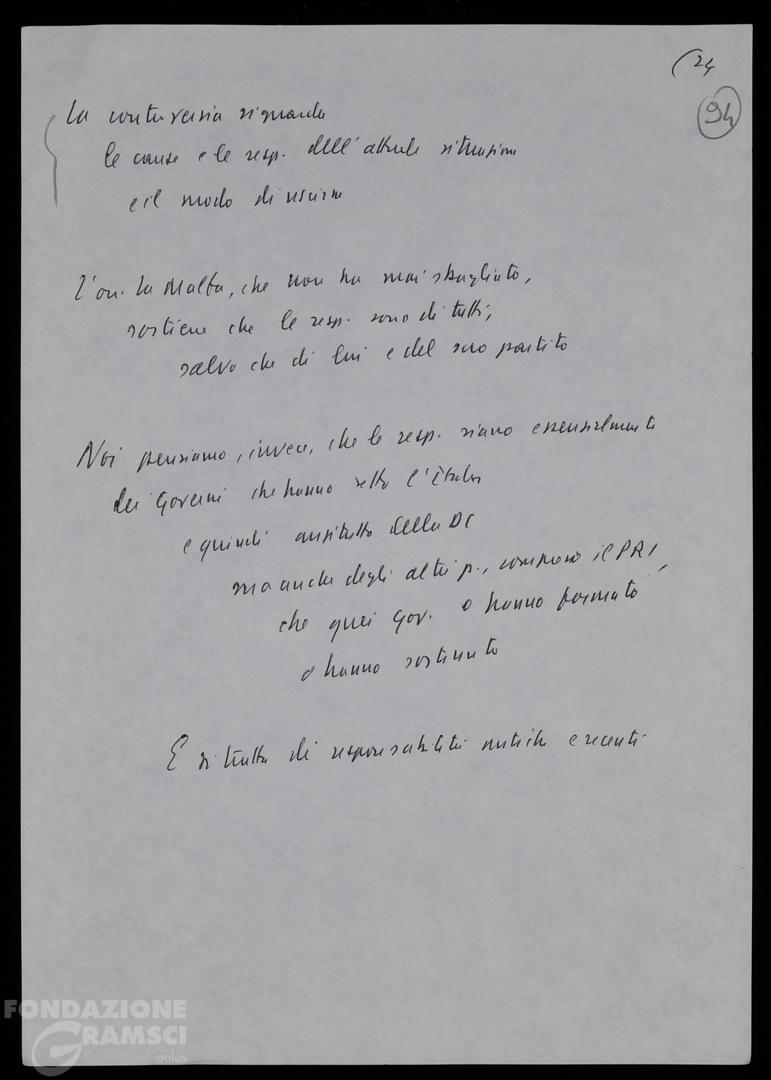 (24
94
La controversia riguarda
le cause e le resp. dell'attuale situazione
e il modo di uscirne
L'on. La Malfa, che non ha mai sbagliato,
sostiene che le resp. sono di tutti,
salvo che di lui e del suo partito
Noi pensiamo, invece, che le resp. siano essenzialmente
dei Governi che hanno retto l'Italia
e quindi anzitutto della DC
ma anche degli altri p., compreso il PRI,
che quei Gov. o hanno formato
o hanno sostenuto
E si tratta di responsabilità antiche e recenti
FONDAZIONE
GRAMSCI
onlus